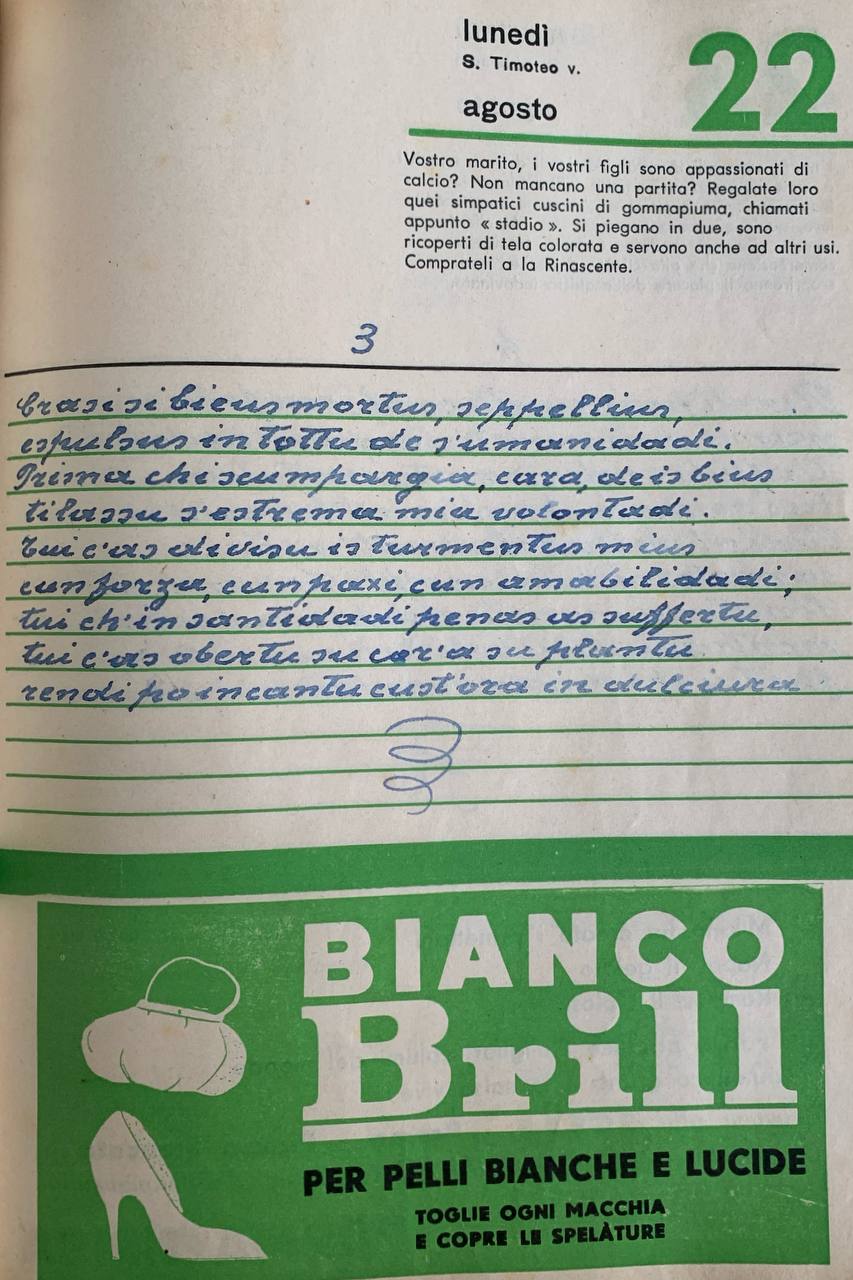 lunedì
S. Timoteo v.
agosto
22
Vostro marito, i vostri figli sono appassionati di
calcio? Non mancano una partita? Regalate loro
quei simpatici cuscini di gommapiuma, chiamati
appunto « stadio ». Si piegano in due, sono
ricoperti di tela colorata e servono anche ad altri usi.
Comprateli a la Rinascente.
3
Crasi si bieus mortus, seppellius,
espulsus in tottu de s'umanidadi.
Prima chi scumpargia, cara, de is bius
ti lassu s'estrema mia volontadi.
Tui c'as divisu is turmentus mius
cun forza, cun paxi, cun amabilidadi;
tui ch'in santidadi penas as suffertu,
tui c'as obertu su cor'a su plantu
rendi po incantu cust'ora in dulciura
BIANCO
Brill
PER PELLI BIANCHE E LUCIDE
TOGLIE OGNI MACCHIA
E COPRE LE SPELÀTURE